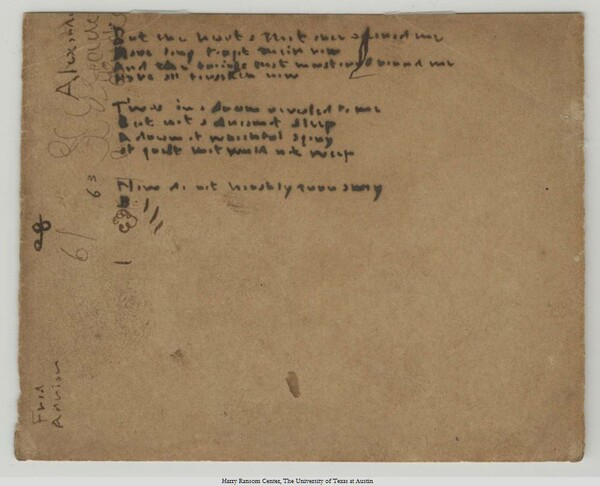 But the hearts that once adored me
Have long forgot their vow
And the friends that mustered round me
Have all forsaken now
Twas in a dream revealed to me
But not a dream of sleep
A dream of watchful agony
Of grief that would not weep
Now do not harshly turn away
63
61
Harry Ransom Center, The University of Texas at Austin